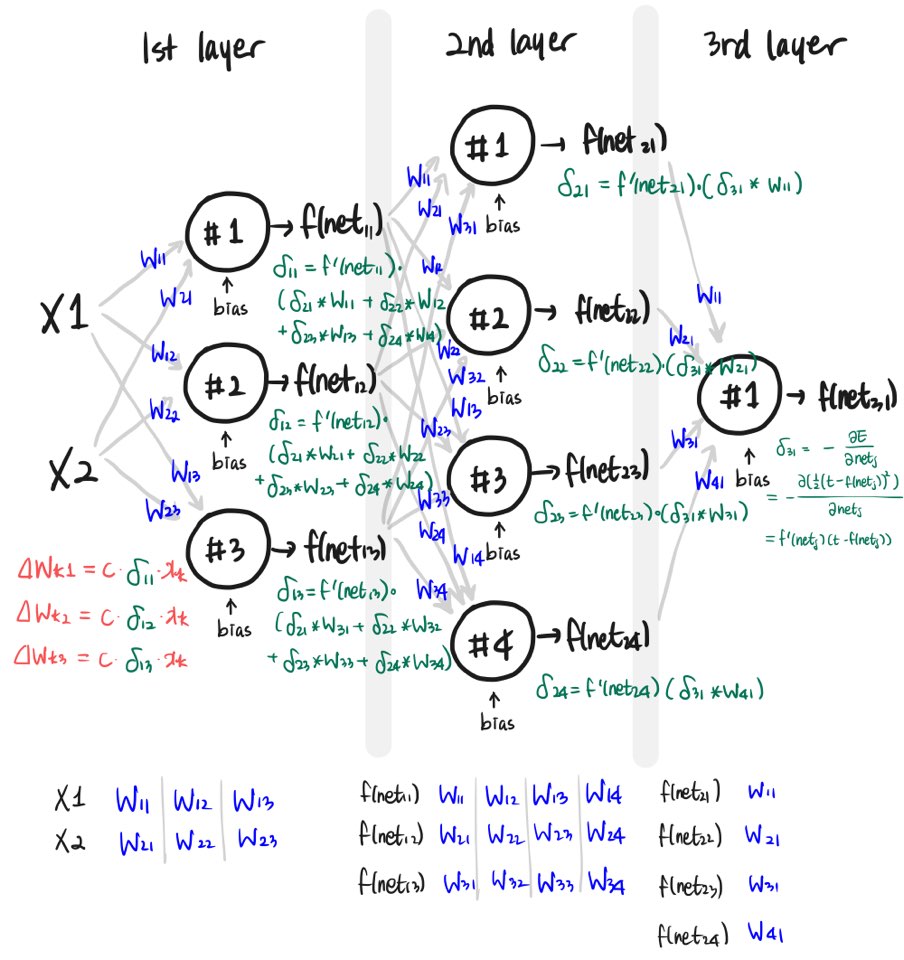 1st layer
2nd layer
3rd layer
X1
X2
W11
W21
W12
W22
W13
W23
#1
→ f(net11)
↑
bias
δ11 = f'(net11)·
(δ21*W11 + δ22*W12
+ δ23*W13 + δ24*W14)
#2
→ f(net12)
↑
bias
δ12 = f'(net12)·
(δ21*W21 + δ22*W22
+ δ23*W23 + δ24*W24)
#3
→ f(net13)
↑
bias
δ13 = f'(net13)·
(δ21*W31 + δ22*W32
+ δ23*W33 + δ24*W34)
ΔWk1 = C·δ11·xk
ΔWk2 = C·δ12·xk
ΔWk3 = C·δ13·xk
W11
W21
W31
W12
W22
W32
W13
W23
W33
W24
W14
W34
#1
→ f(net21)
↑
bias
δ21 = f'(net21)·(δ31*W11)
#2
→ f(net22)
↑
bias
δ22 = f'(net22)·(δ31*W21)
#3
→ f(net23)
↑
bias
δ23 = f'(net23)·(δ31*W31)
#4
→ f(net24)
↑
bias
δ24 = f'(net24)(δ31*W41)
W11
W21
W31
W41
#1
→ f(net31)
↑
bias
δ31 = - ∂E/∂netj
= - ∂(½(t-f(netj))²)/∂netj
= f'(netj)(t-f(netj))
X1 W11 W12 W13
X2 W21 W22 W23
f(net11) W11 W12 W13 W14
f(net12) W21 W22 W23 W24
f(net13) W31 W32 W33 W34
f(net21) W11
f(net22) W21
f(net23) W31
f(net24) W41